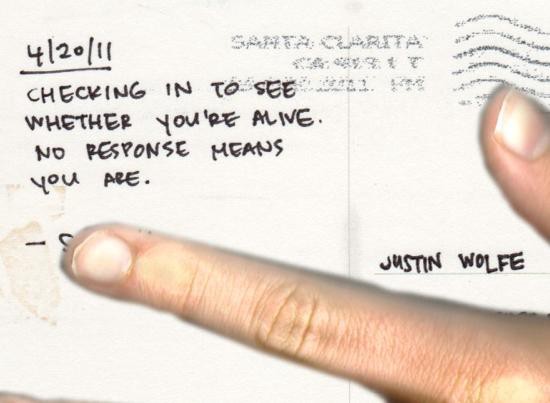 4/20/11
CHECKING IN TO SEE
WHETHER YOU'RE ALIVE.
NO RESPONSE MEANS
YOU ARE.
SANTA CLARITA
JUSTIN WOLFE